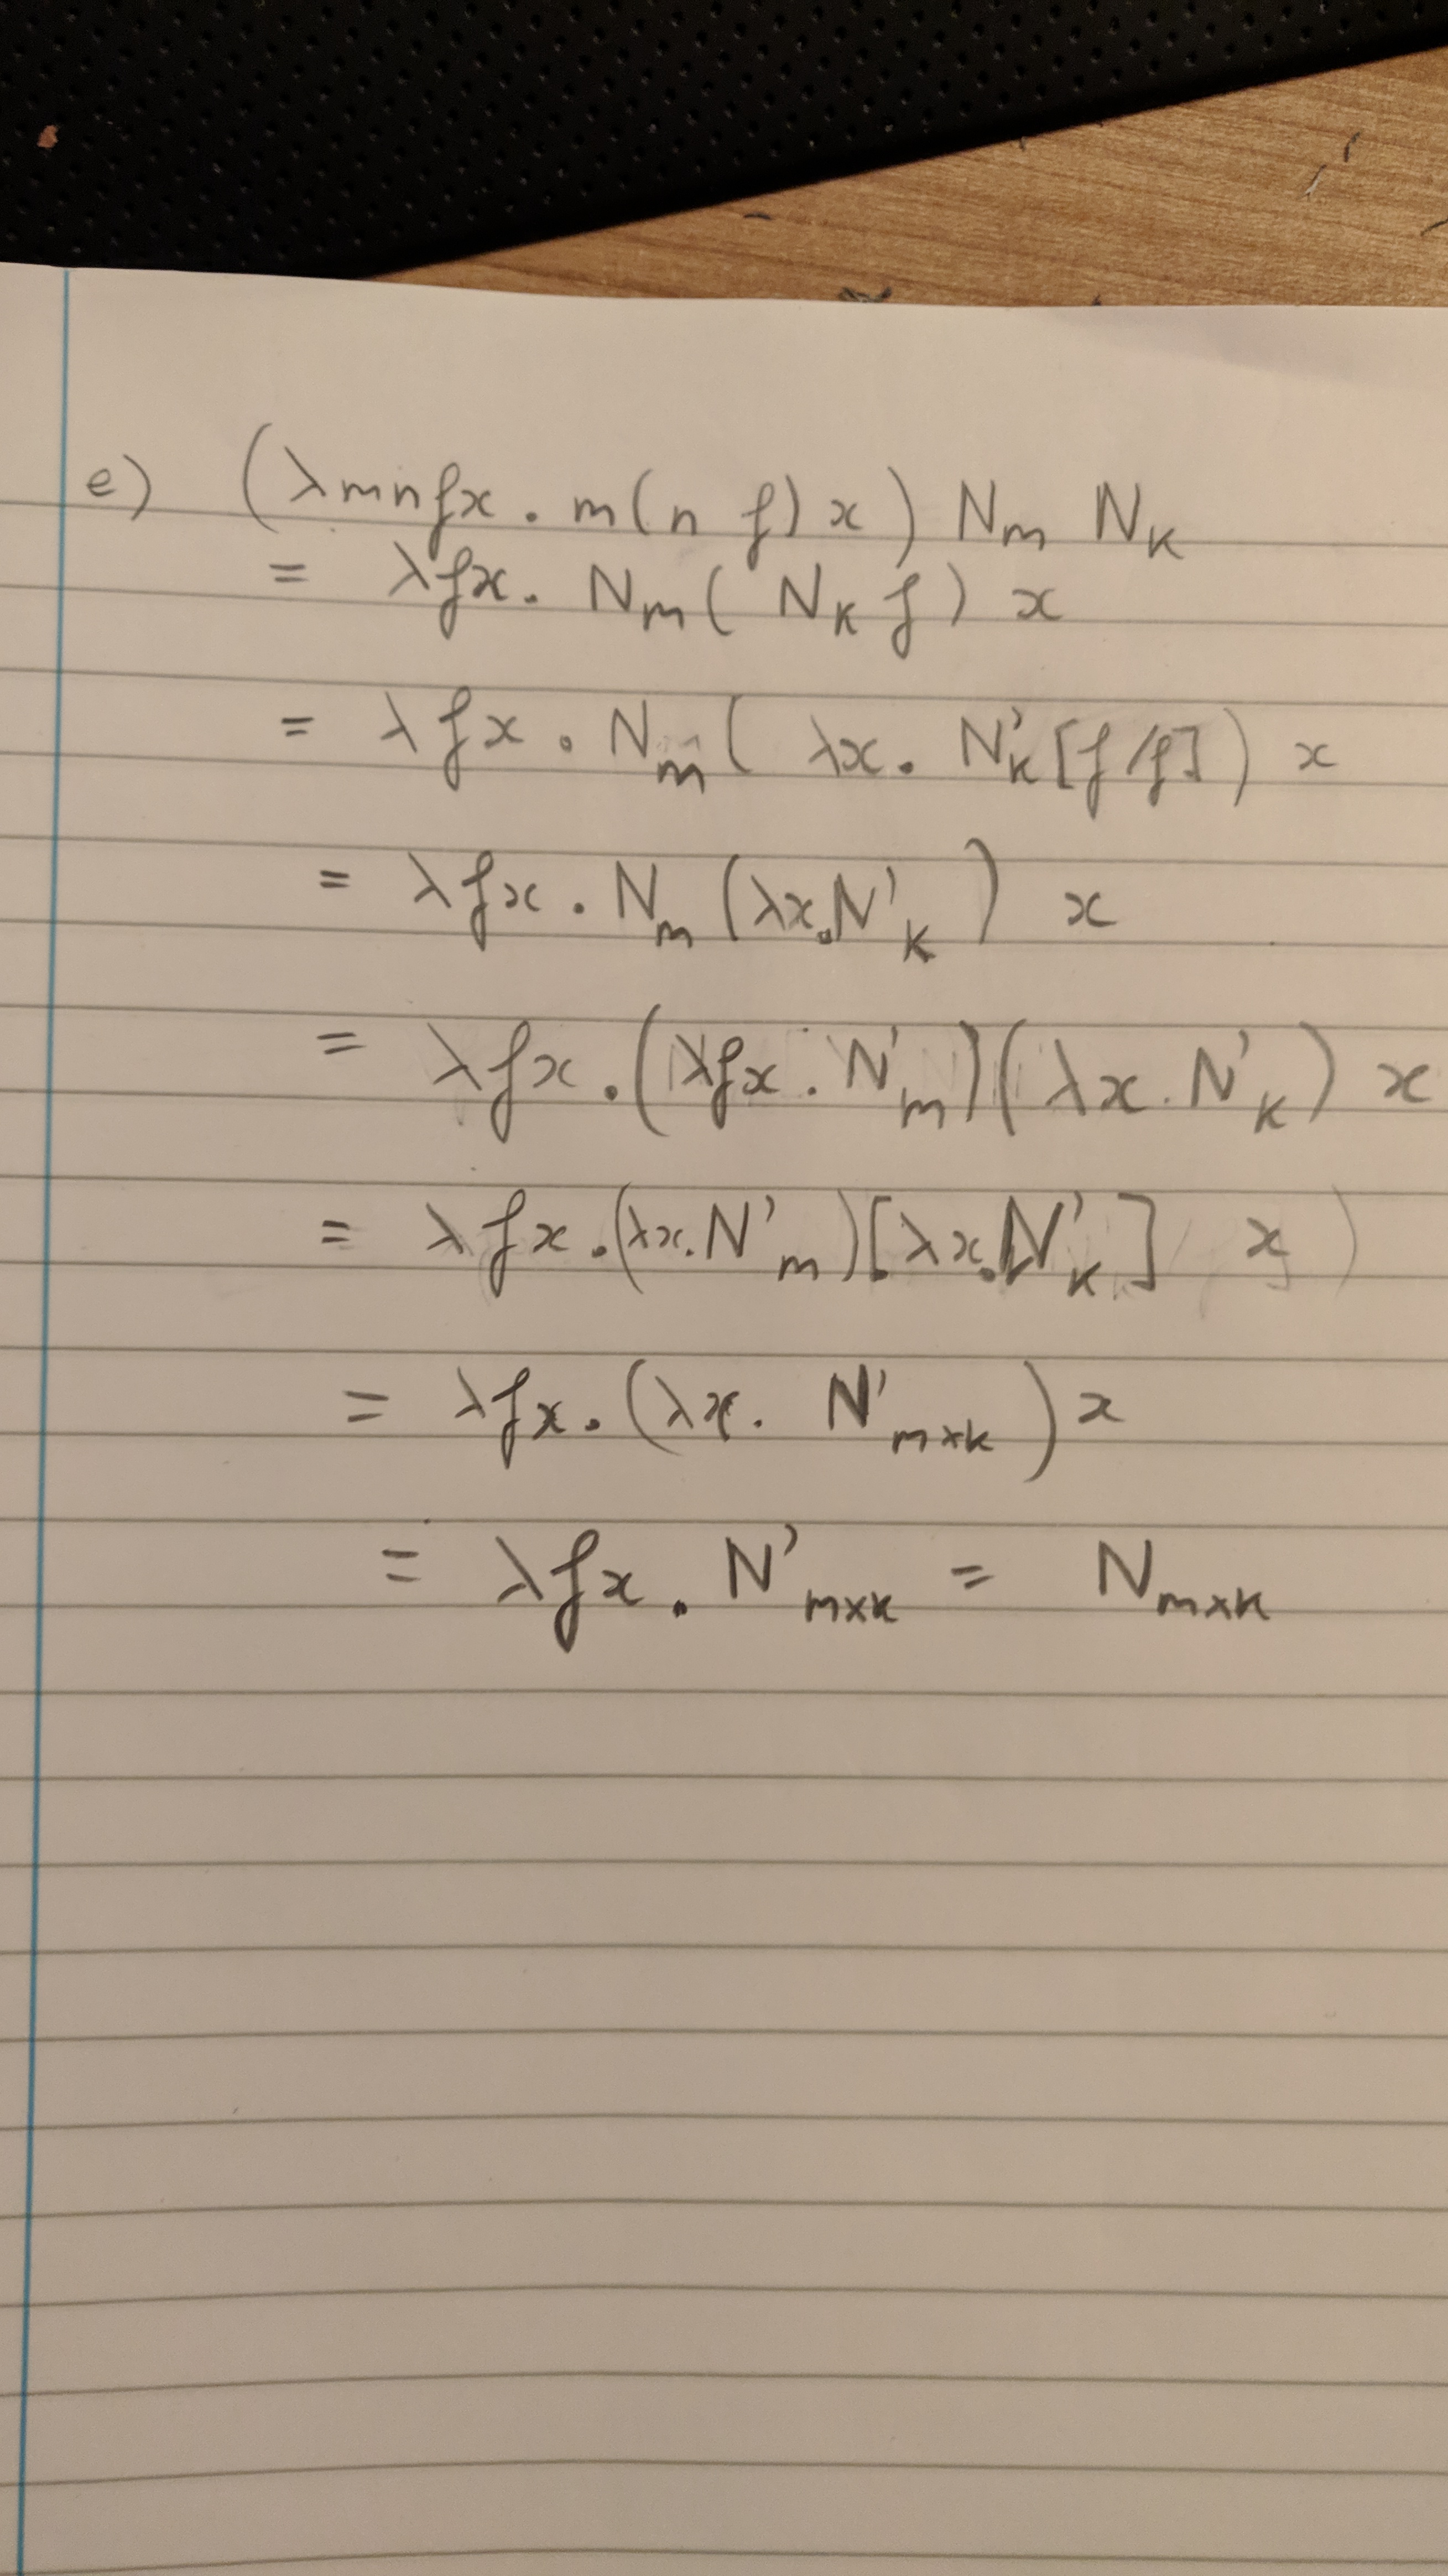 e) (λmnfx . m(n f) x) Nₘ Nₖ
= λfx. Nₘ( Nₖ f) x
= λfx . Nₘ( λx. N'ₖ[f/f]) x
= λfx . Nₘ (λx.N'ₖ) x
= λfx .(λfx . N'ₘ)(λx. N'ₖ) x
= λfx .(λx.N'ₘ)[λx.N'ₖ] x )
= λfx.(λx. N'ₘₓₖ)x
= λfx . N'ₘₓₖ = Nₘₓₖ